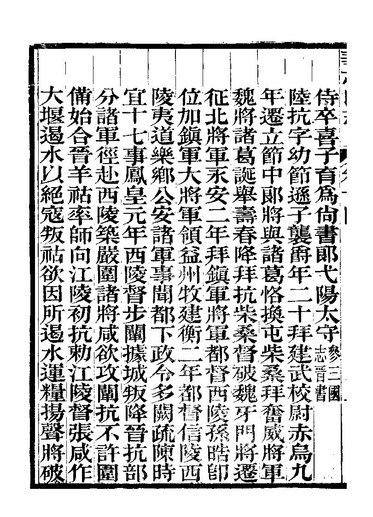 侍卒喜子育為尚書郎弋陽太守參三國志晉書
陸抗字幼節遜子襲爵年二十拜建武校尉赤烏九
年遷立節中郎將與諸葛恪換屯柴桑拜奮威將軍
魏將諸葛誕舉壽春降拜抗柴桑督破魏牙門將遷
征北將軍永安二年拜鎮軍將軍都督西陵孫皓即
位加鎮軍大將軍領益州牧建衡二年都督信陵西
陵夷道樂鄉公安諸軍事聞都下政令多闕疏陳時
宜十七事鳳皇元年西陵督步闡據城叛降晉抗部
分諸軍徑赴西陵築嚴圍諸將咸欲攻闡抗不許圍
備始合晉羊祜率師向江陵初抗勅江陵督張咸作
大堰遏水以絕寇叛祜欲因所遏水運糧揚聲將破